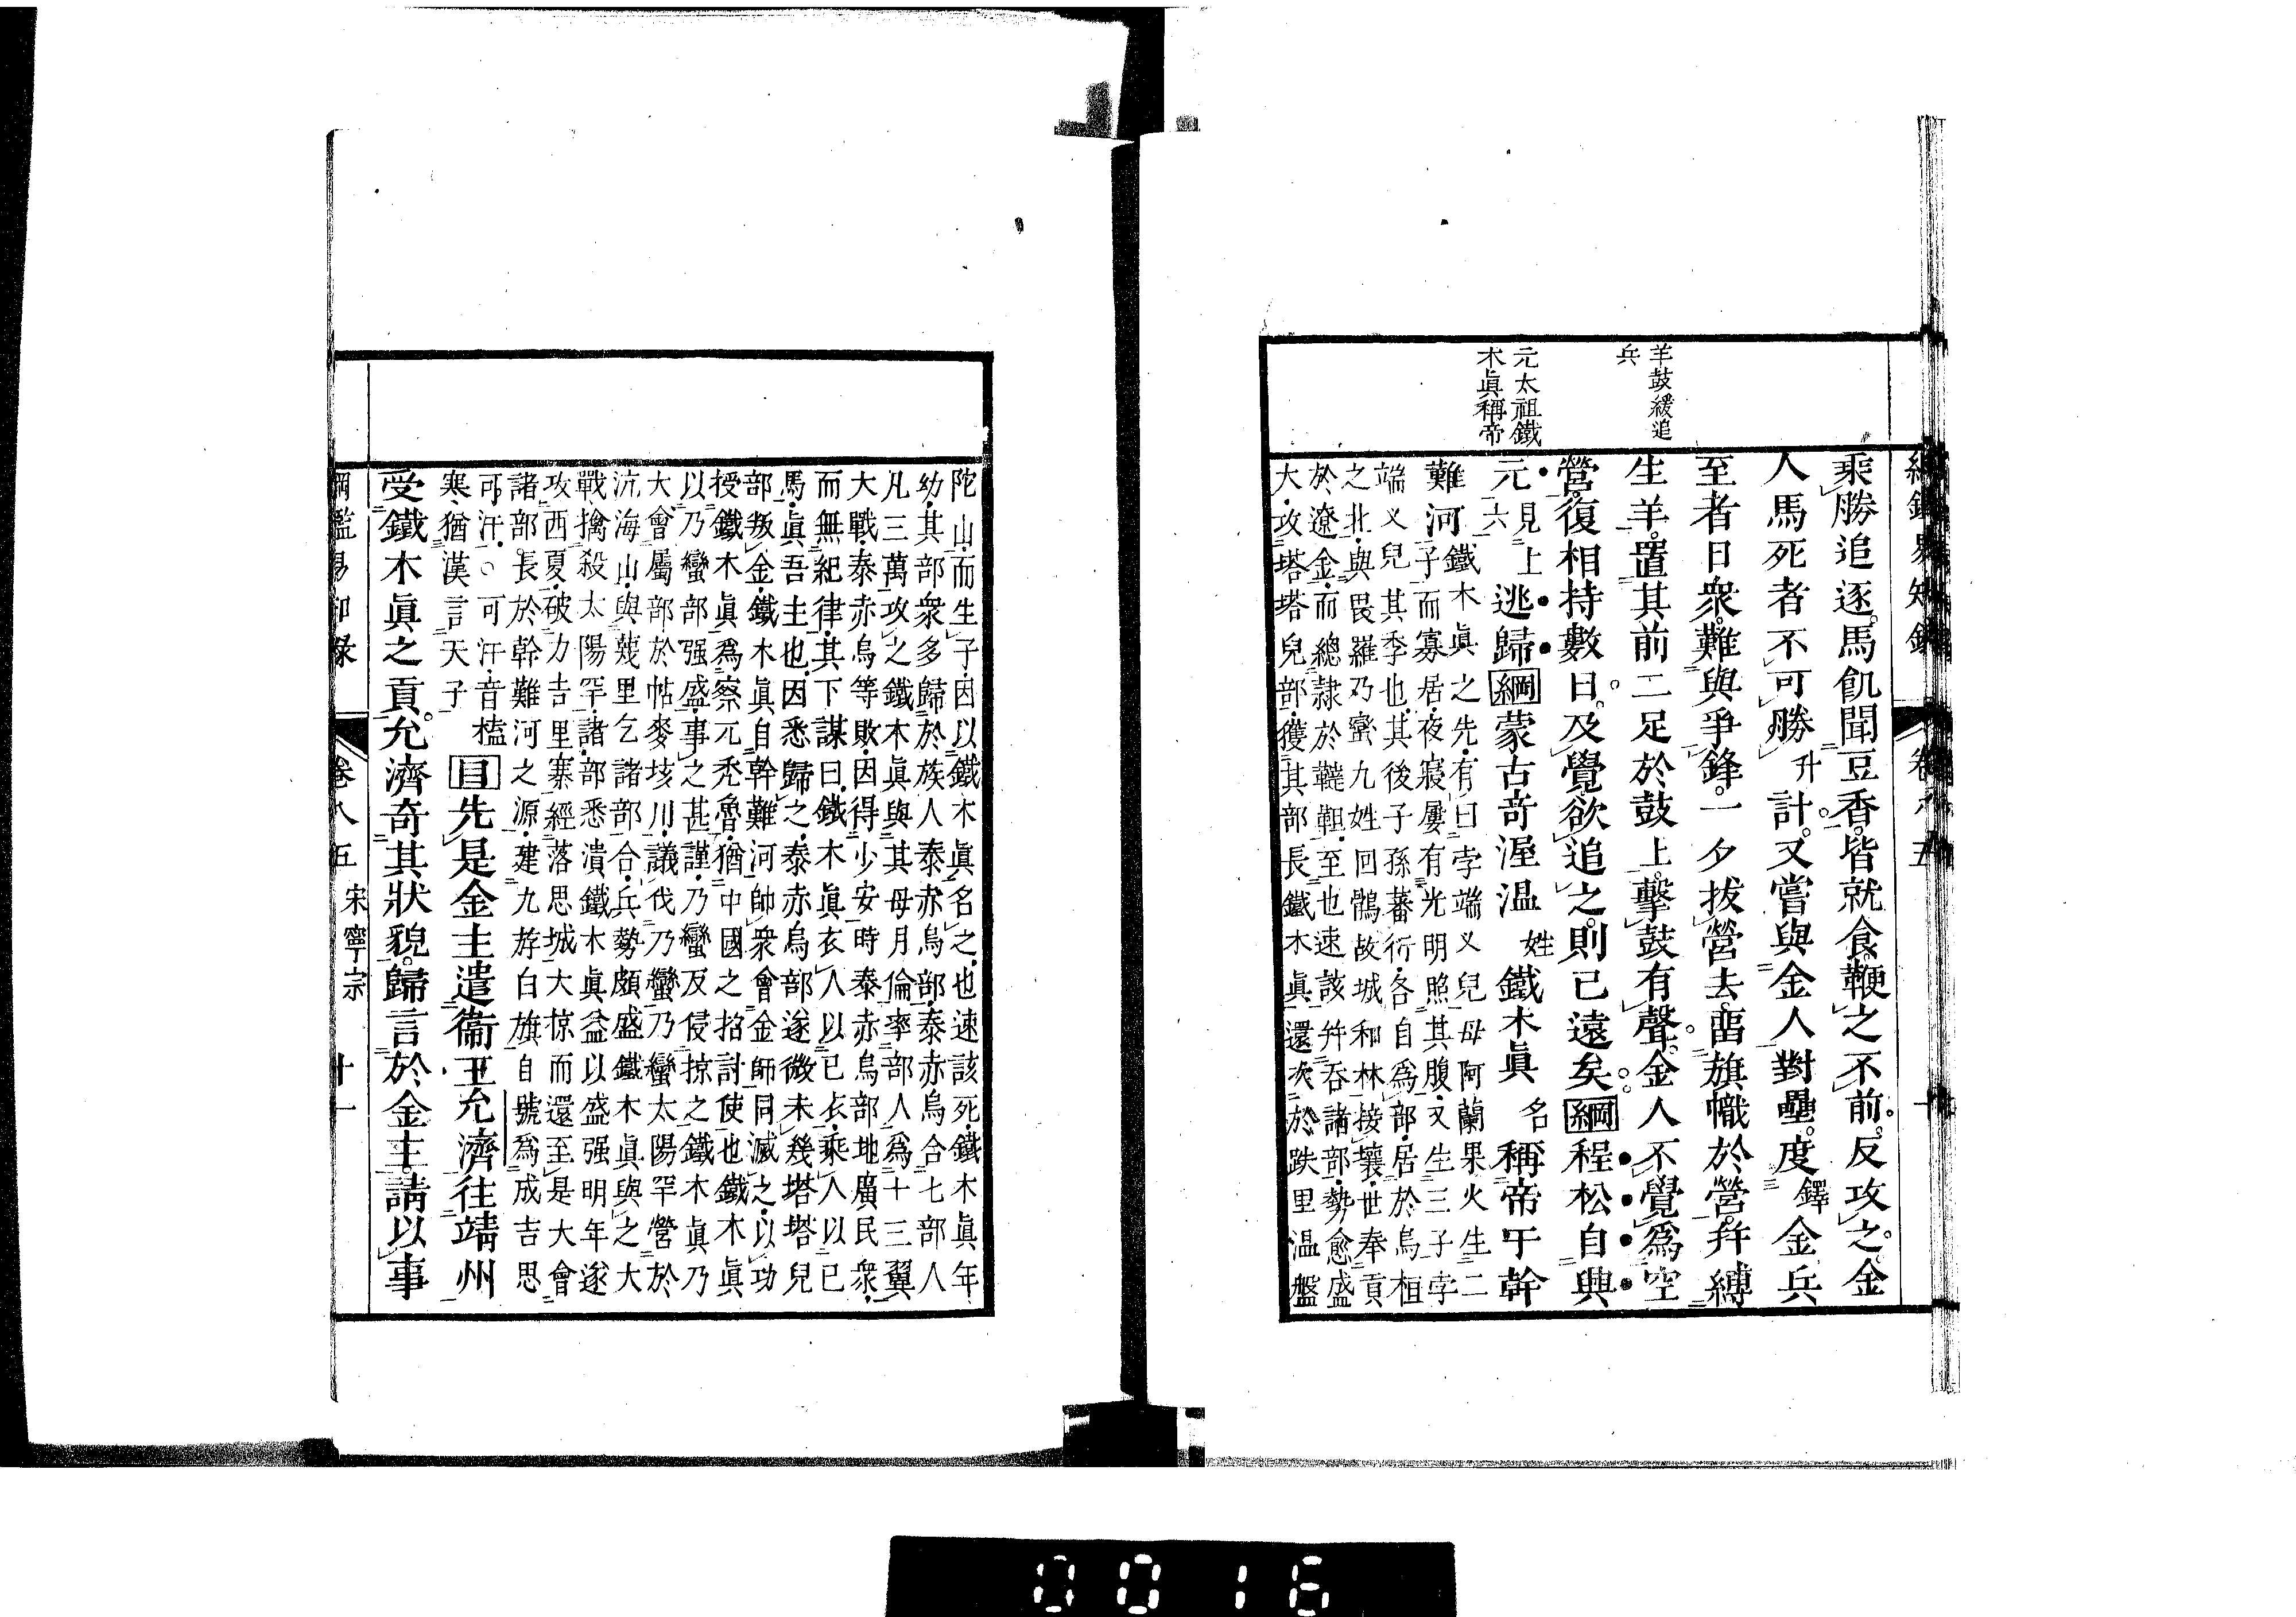 羊鼓緩追
兵
元太祖鐵
木眞稱帝
乘勝追逐馬飢聞豆香皆就食鞭之不前反攻之金
人馬死者不可勝升計又嘗與金人對壘度鐸金兵
至者日衆難與爭鋒一夕拔營去畱旗幟於營幷縛
生羊置其前二足於鼓上擊鼓有聲金人不覺爲空
營復相持數日及覺欲追之則已遠矣綱程松自興
元見上六逃歸綱蒙古奇渥温姓鐵木眞名稱帝于斡
難河鐵木眞之先有曰孛端义兒母阿蘭果火生二
子而寡居夜寢屢有光明照其腹又生三子孛
端义兒其季也其後子孫蕃衍各自爲部居於烏桓
之北與畏羅乃蠻九姓回鶻故城和林接壤世奉貢
於遼金而總隸於韃靼至也速該幷吞諸部勢愈盛
大攻塔塔兒部獲其部長鐵木眞還次於跌里温盤
陀山而生子因以鐵木眞名之也速該死鐵木眞年
幼其部衆多歸於族人泰赤烏部泰赤烏合七部人
凡三萬攻之鐵木眞與其母月倫率部人爲十三翼
大戰泰赤烏等敗因得少安時泰赤烏部地廣民衆
而無紀律其下謀曰鐵木眞衣人以已衣乘人以已
馬眞吾主也因悉歸之泰赤烏部遂微未幾塔塔兒
部叛金鐵木眞自斡難河帥衆會金師同滅之以功
授鐵木眞爲察元禿魯猶中國之招討使也鐵木眞
以乃蠻部强盛事之甚謹乃蠻反侵掠之鐵木眞乃
大會屬部於帖麥垓川議伐乃蠻乃蠻太陽罕營於
沆海山與蔑里乞諸部合兵勢頗盛鐵木眞與之大
戰擒殺太陽罕諸部悉潰鐵木眞益以盛强明年遂
攻西夏破力吉里寨經落思城大掠而還至是大會
諸部長於斡難河之源建九斿白旗自號爲成吉思
可汗○可汗音榼
寒猶漢言天子目先是金主遣衞王允濟往靖州
受鐵木眞之貢允濟奇其狀貌歸言於金主請以事
綱鑑易知錄 卷八五 宋寧宗 十一
0016